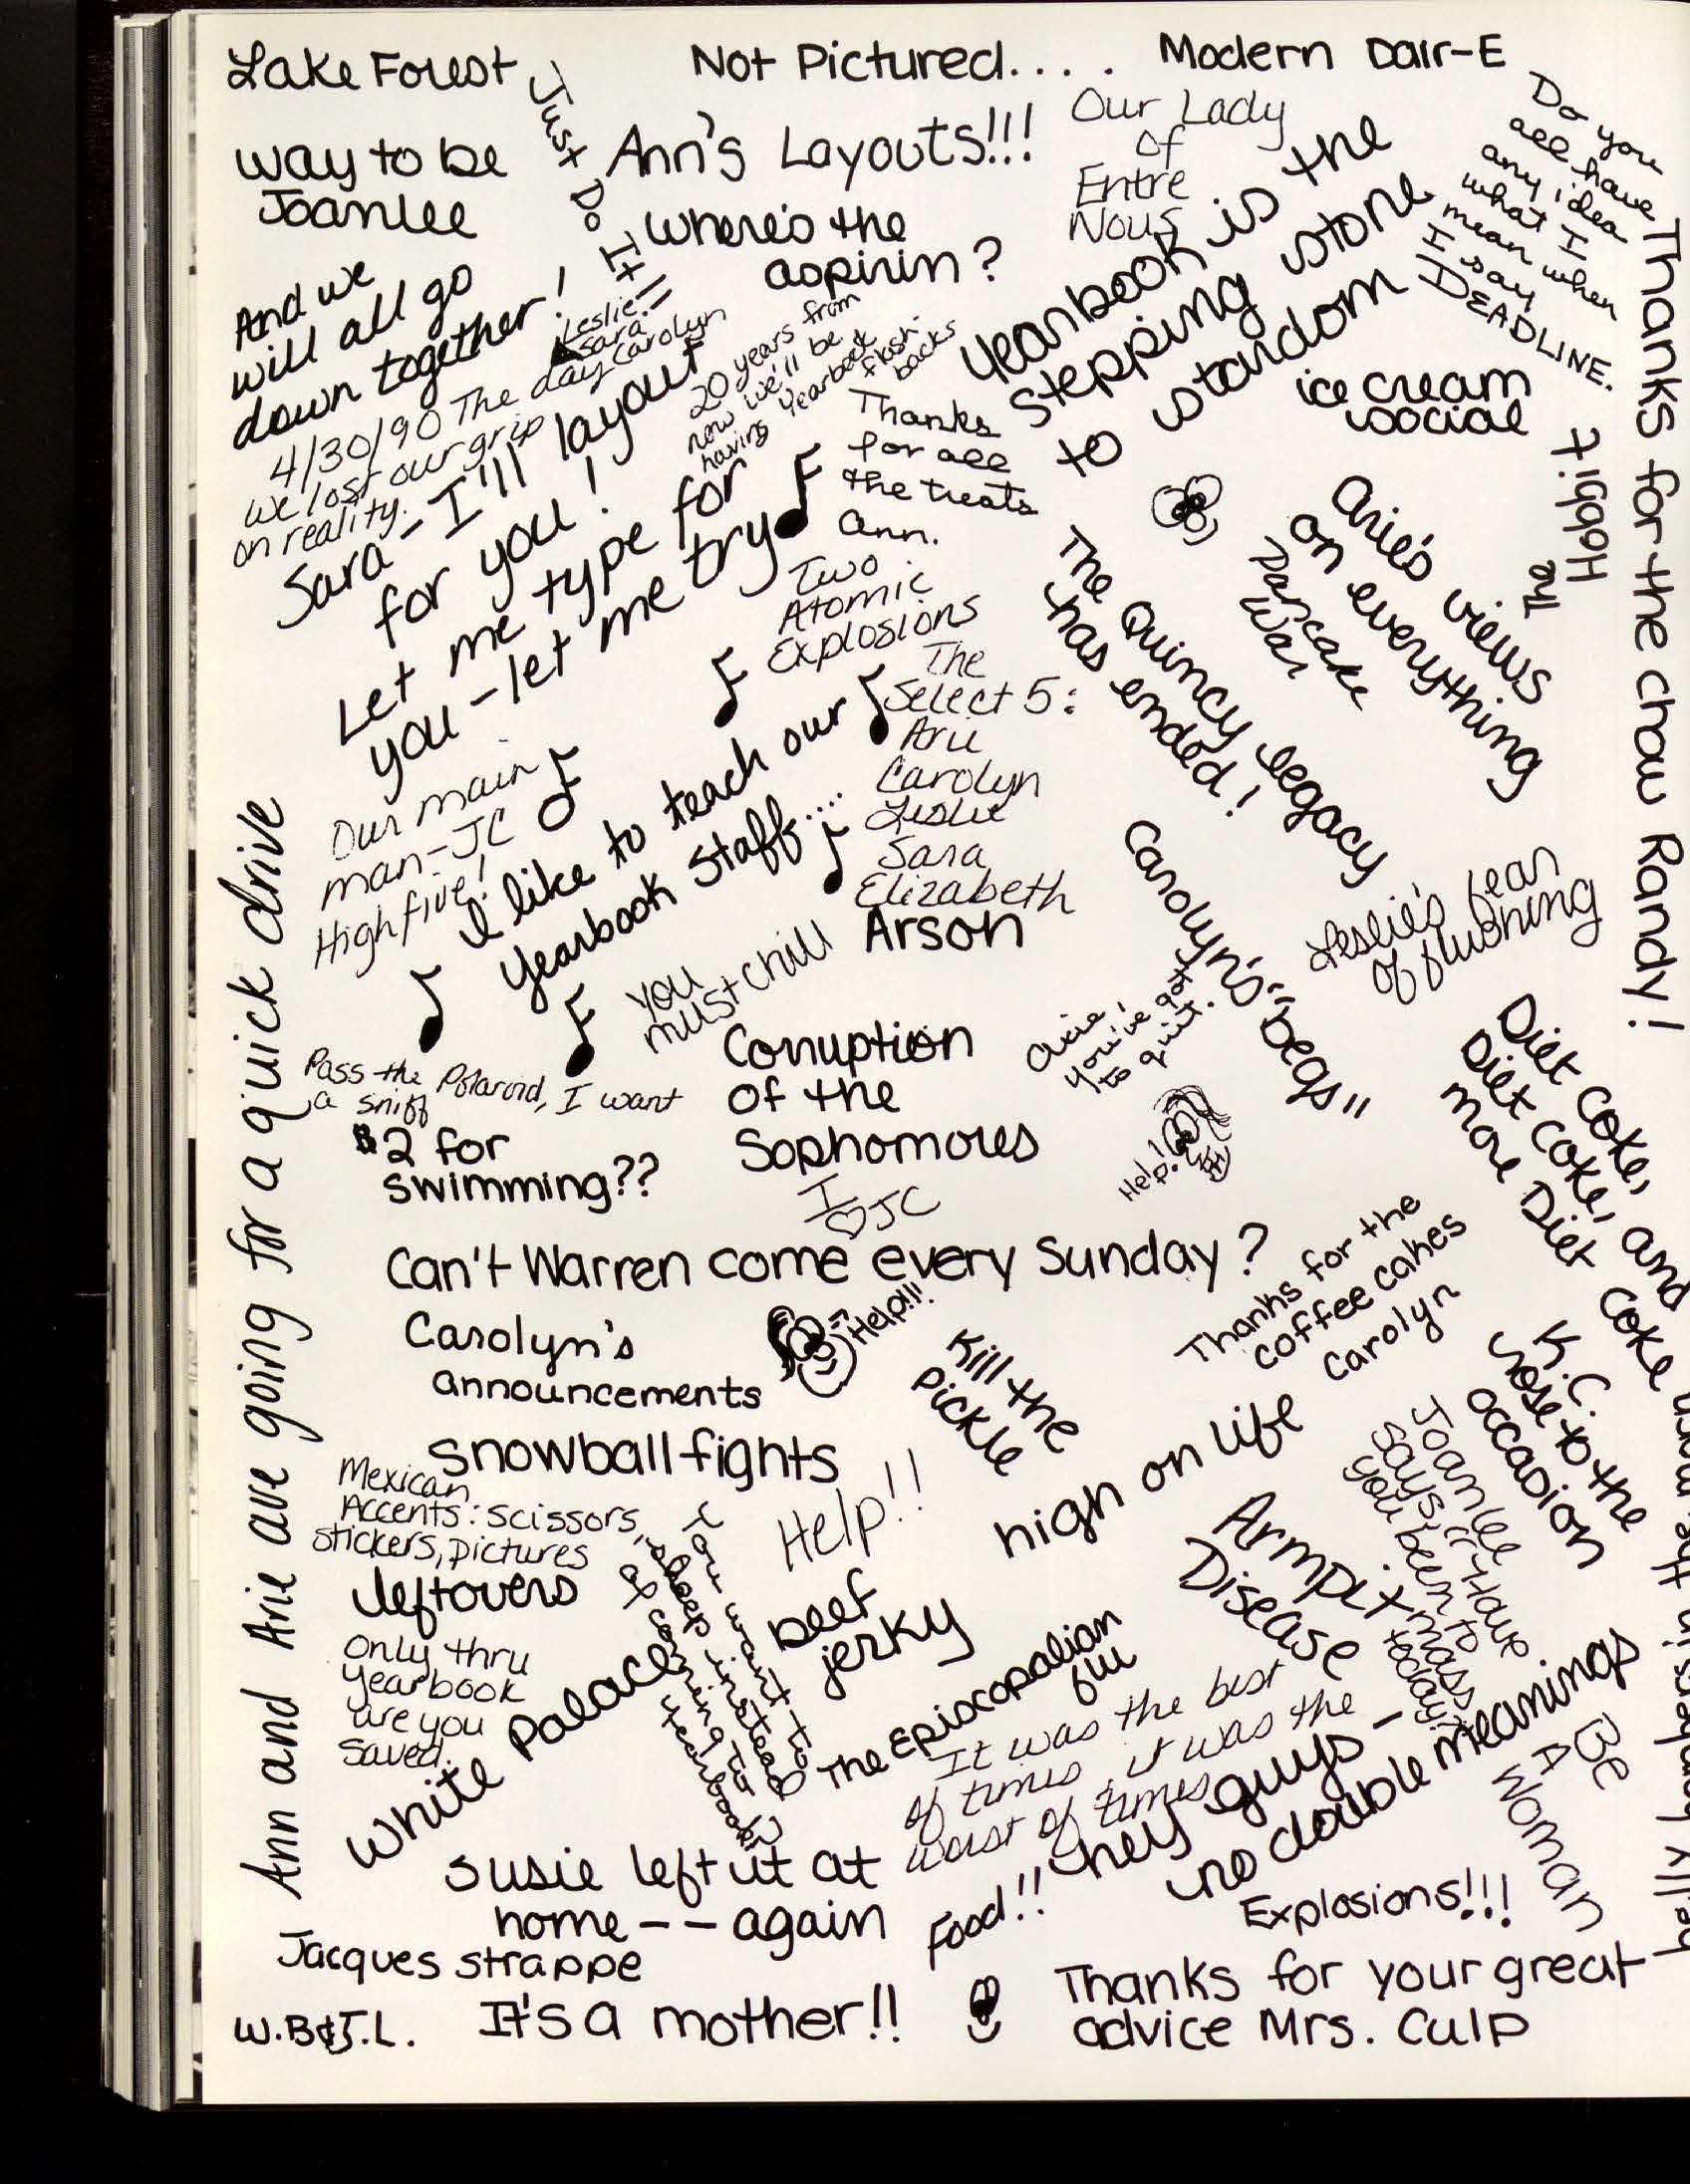 Lake Forest
Not Pictured....
Modern Dair-E
Just Do It!!
way to be
Joanlee
Ann's Layouts!!!
Our Lady
of
Entre
Nous
Do you
all have
any idea
what I
mean when
I say
DEADLINE.
where's the
aspirin?
Yearbook is the
stepping stone
to stardom
And we
will all go
down together!
Leslie!
Sara!
4/30/90 The day Carolyn
we lost our grip
on reality.
20 years from
now we'll be
having yearbook
flash-
backs
ice cream
social
Thanks for the chow Randy!
Sara - I'll layout
for you!
Let me type for
you - let me try
Thanks
for all
the treats
Ann.
The
Hobbit
Arie's views
on everything
Pancake
War
Two
Atomic
Explosions
The Quincy legacy
has ended!
The
Select 5:
Arie
Carolyn
Leslie
Sara
Elizabeth
Our main
man-JC
High five!
I like to teach our
yearbook staff....
Arson
You
must chill
Carolyn's "begs"
Leslie's fear
of flushing
Arie!
you've got
to quit.
Help!
Pass the Polaroid, I want
a sniff
Corruption
of the
Sophomores
$2 for
swimming??
I
♡JC
Diet coke,
Diet coke, and
more Diet coke
Ann and Arie are going for a quick drive
Can't Warren come every Sunday?
Thanks for the
coffee cakes
Carolyn
Carolyn's
announcements
Help!!!
Kill the
pickle
K.C.
rose to the
occasion
snowball fights
Mexican
Accents: scissors,
stickers, pictures
Help!!
high on life
Joanlee
says, "Have
you been to
mass
today?"
Armpit
Disease
leftovers
You want to
sleep instead
of coming to
yearbook?
beef
jerky
only thru
yearbook
are you
saved.
White Palace
The Episcopalian
flu
It was the best
of times, it was the
worst of times
hey guys -
no double meanings
Be
A
Woman
Susie left it at
home -- again
Food!!
Explosions!!!
Jacques Strappe
W.B&J.L.
It's a mother!!
Thanks for your great
advice Mrs. Culp